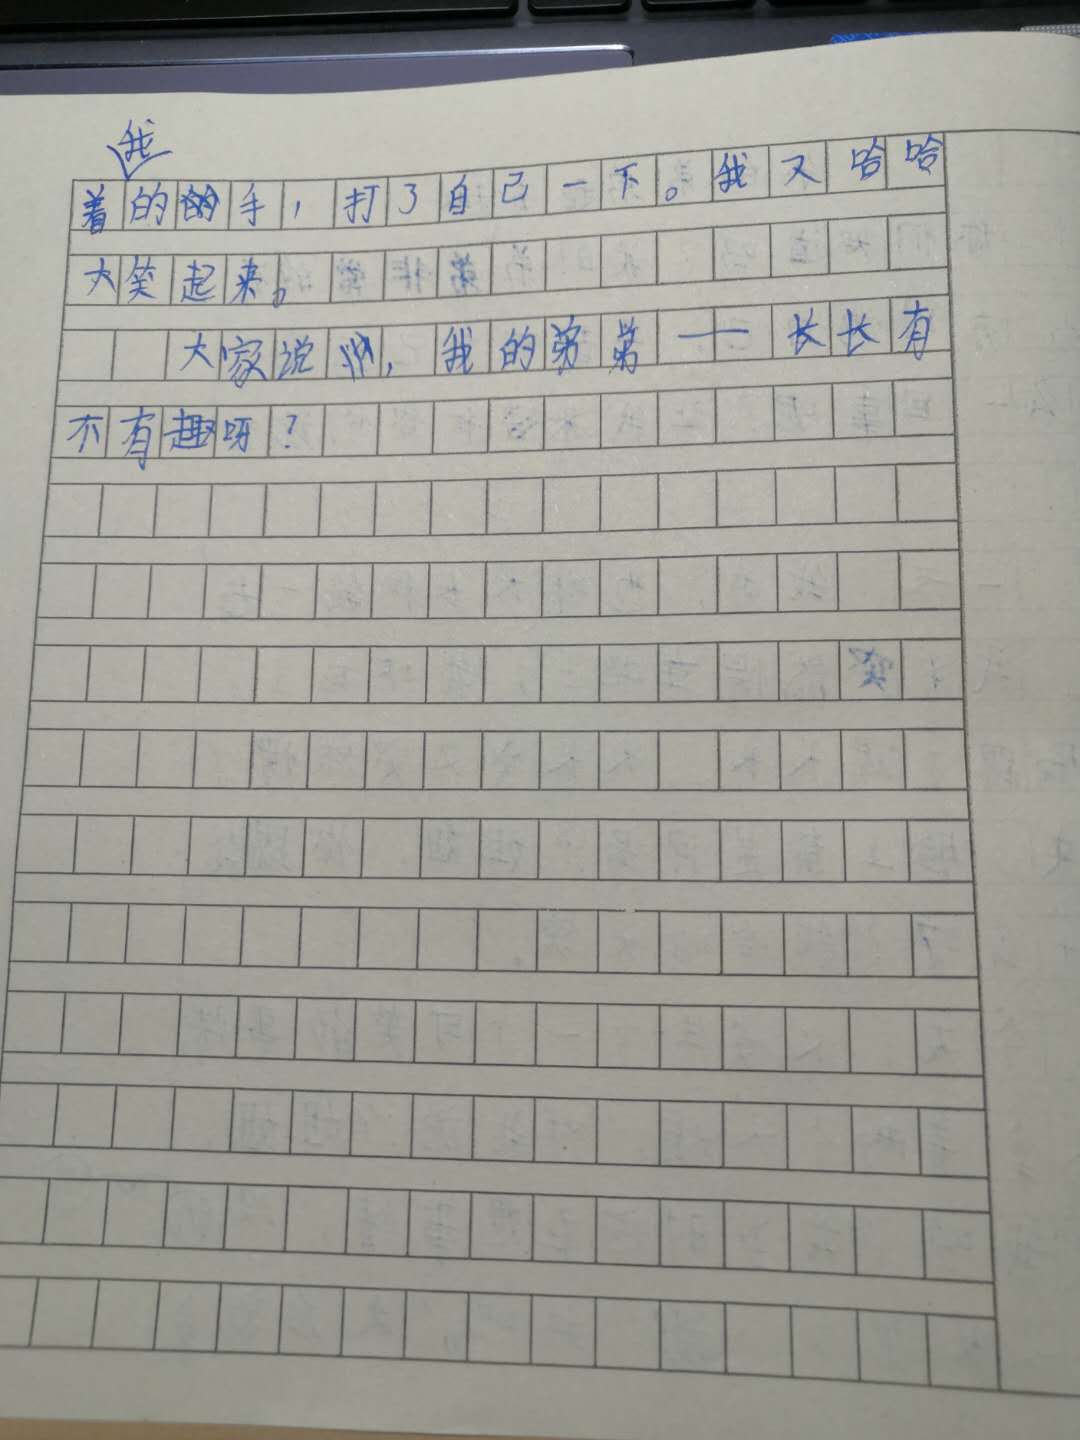 着我的手，打了自己一下。我又哈哈
大笑起来。
大家说说，我的弟弟——长长有
不有趣呀？